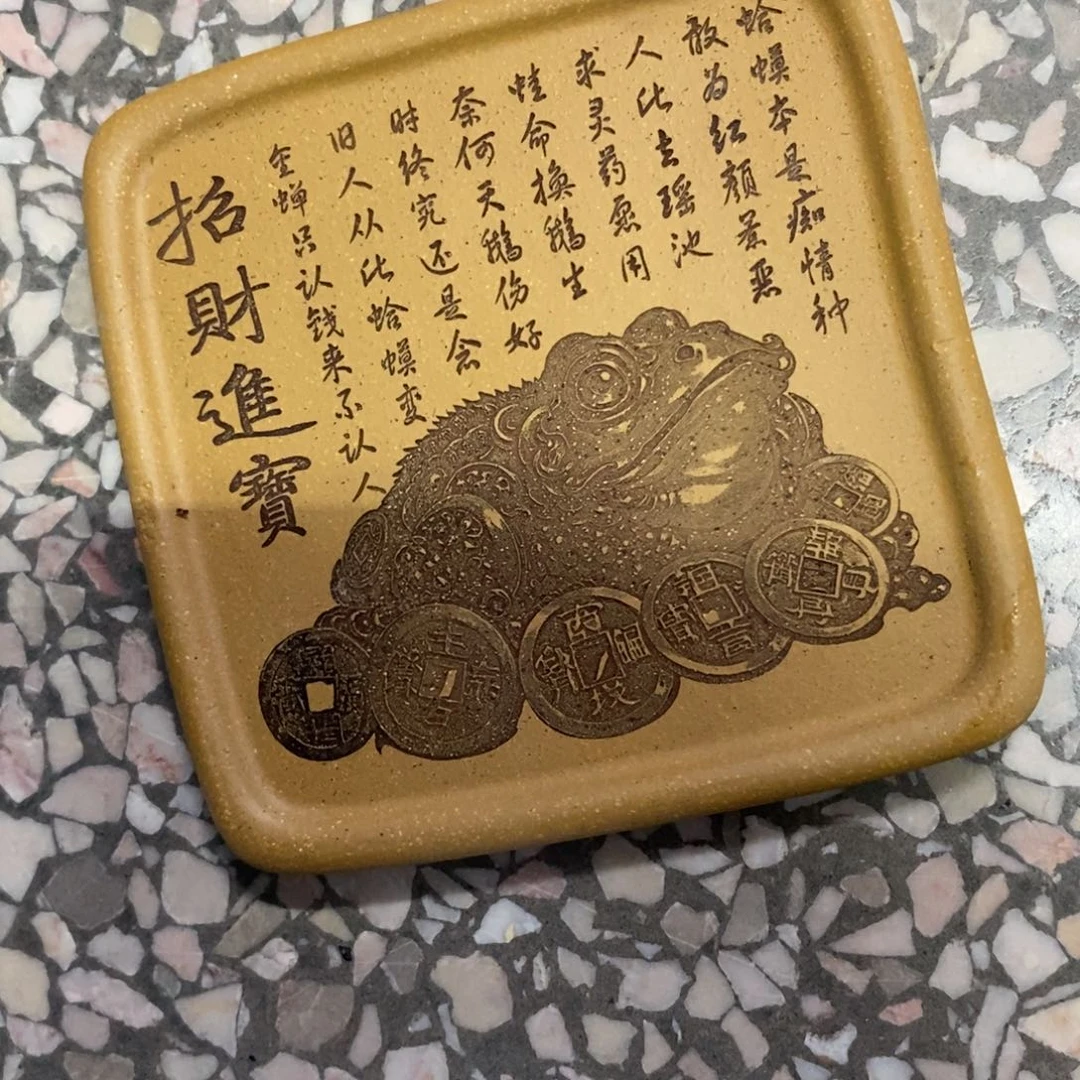 蛤蟆本是痴情种
敢为红颜惹恶
人此去瑶池
求灵药愿用
蛙命换鹅生
奈何天鹅伤好
时终究还是念
旧人从此蛤蟆变
金蝉只认钱来不认人
招財進寶